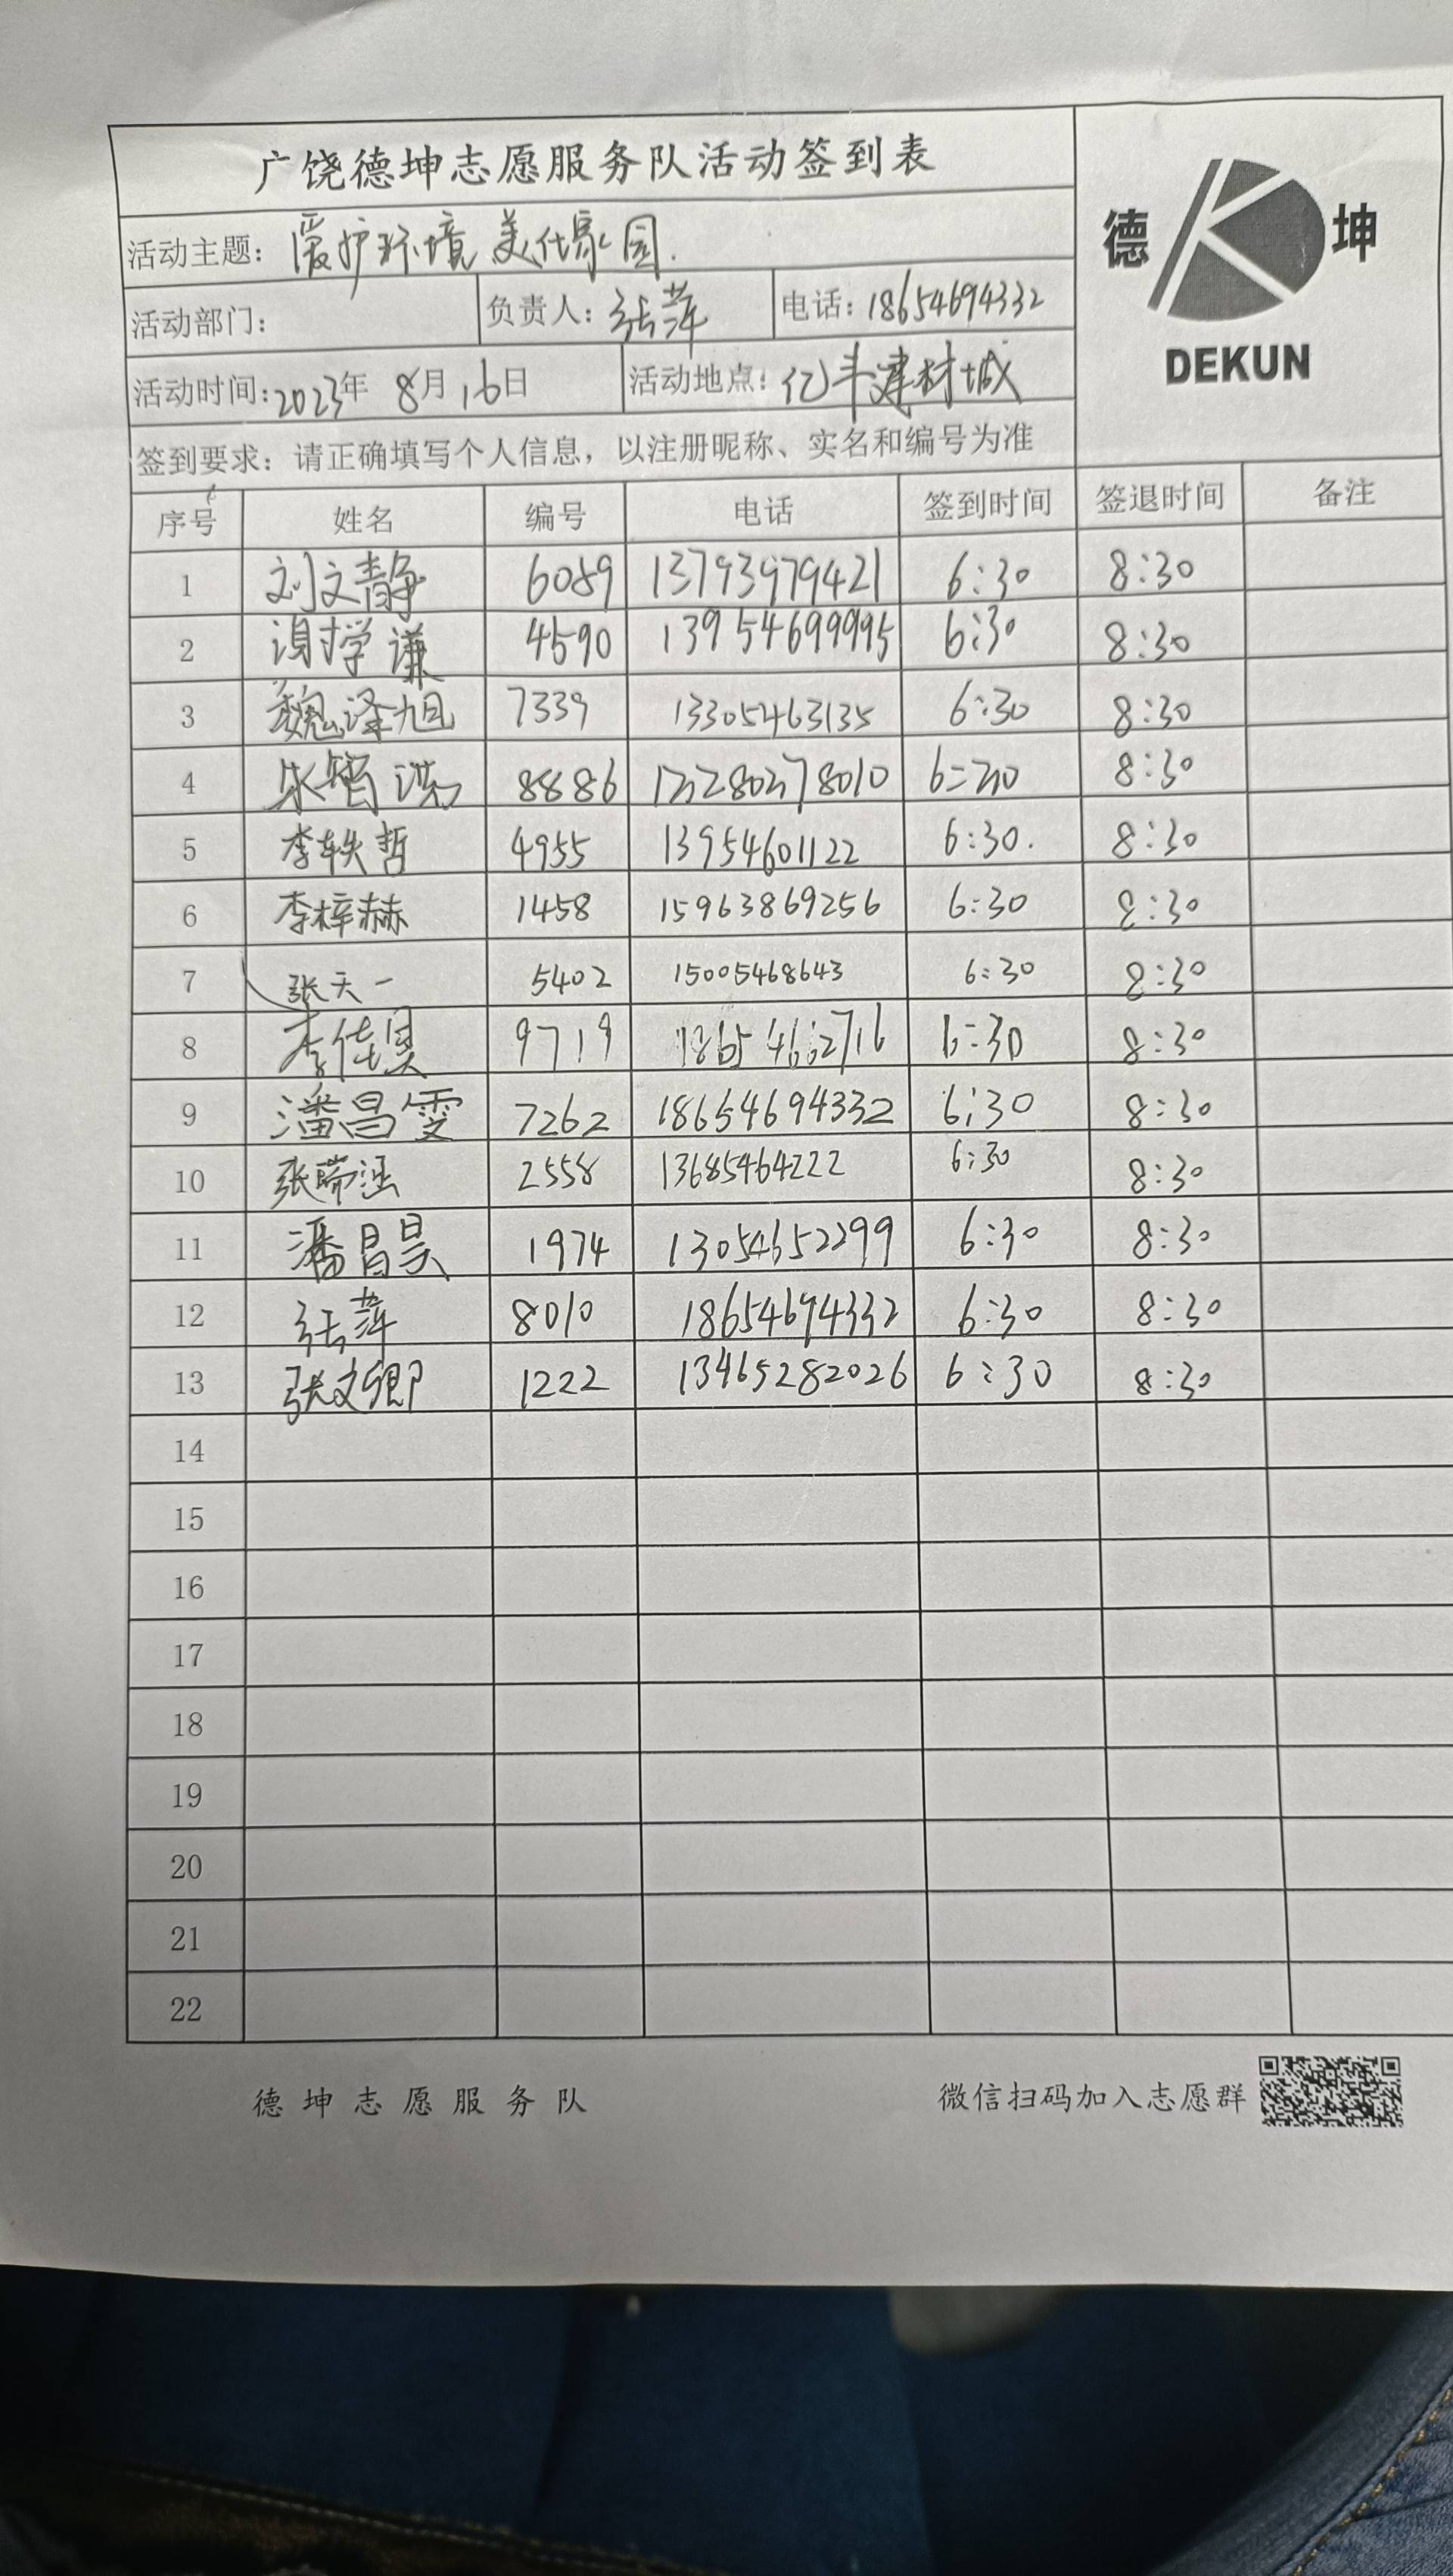 广饶德坤志愿服务队活动签到表
德 坤
DEKUN
活动主题：爱护环境 美化家园.
活动部门： 负责人：张萍 电话：18654694332
活动时间：2023年 8月16日 活动地点：亿丰建材城
签到要求：请正确填写个人信息，以注册昵称、实名和编号为准
序号 姓名 编号 电话 签到时间 签退时间 备注
1 刘文静 6089 13793979421 6:30 8:30
2 学谦 4590 13954699995 6:30 8:30
3 魏泽旭 7339 13305463135 6:30 8:30
4 朱智 8886 8:30
5 李轶哲 4955 13954601122 6:30. 8:30
6 李梓赫 1458 15963869256 6:30 8:30
7 张天一 5402 15005468643 6:30 8:30
8 李佳昊 9719 18654662716 6:30 8:30
9 潘昌雯 7262 18654694332 6:30 8:30
10 张瑞涵 2558 13685464222 6:30 8:30
11 潘昌昊 1974 13054652299 6:30 8:30
12 张萍 8010 18654694332 6:30 8:30
13 张文卿 1222 13465282026 6:30 8:30
14
15
16
17
18
19
20
21
22
德坤志愿服务队 微信扫码加入志愿群